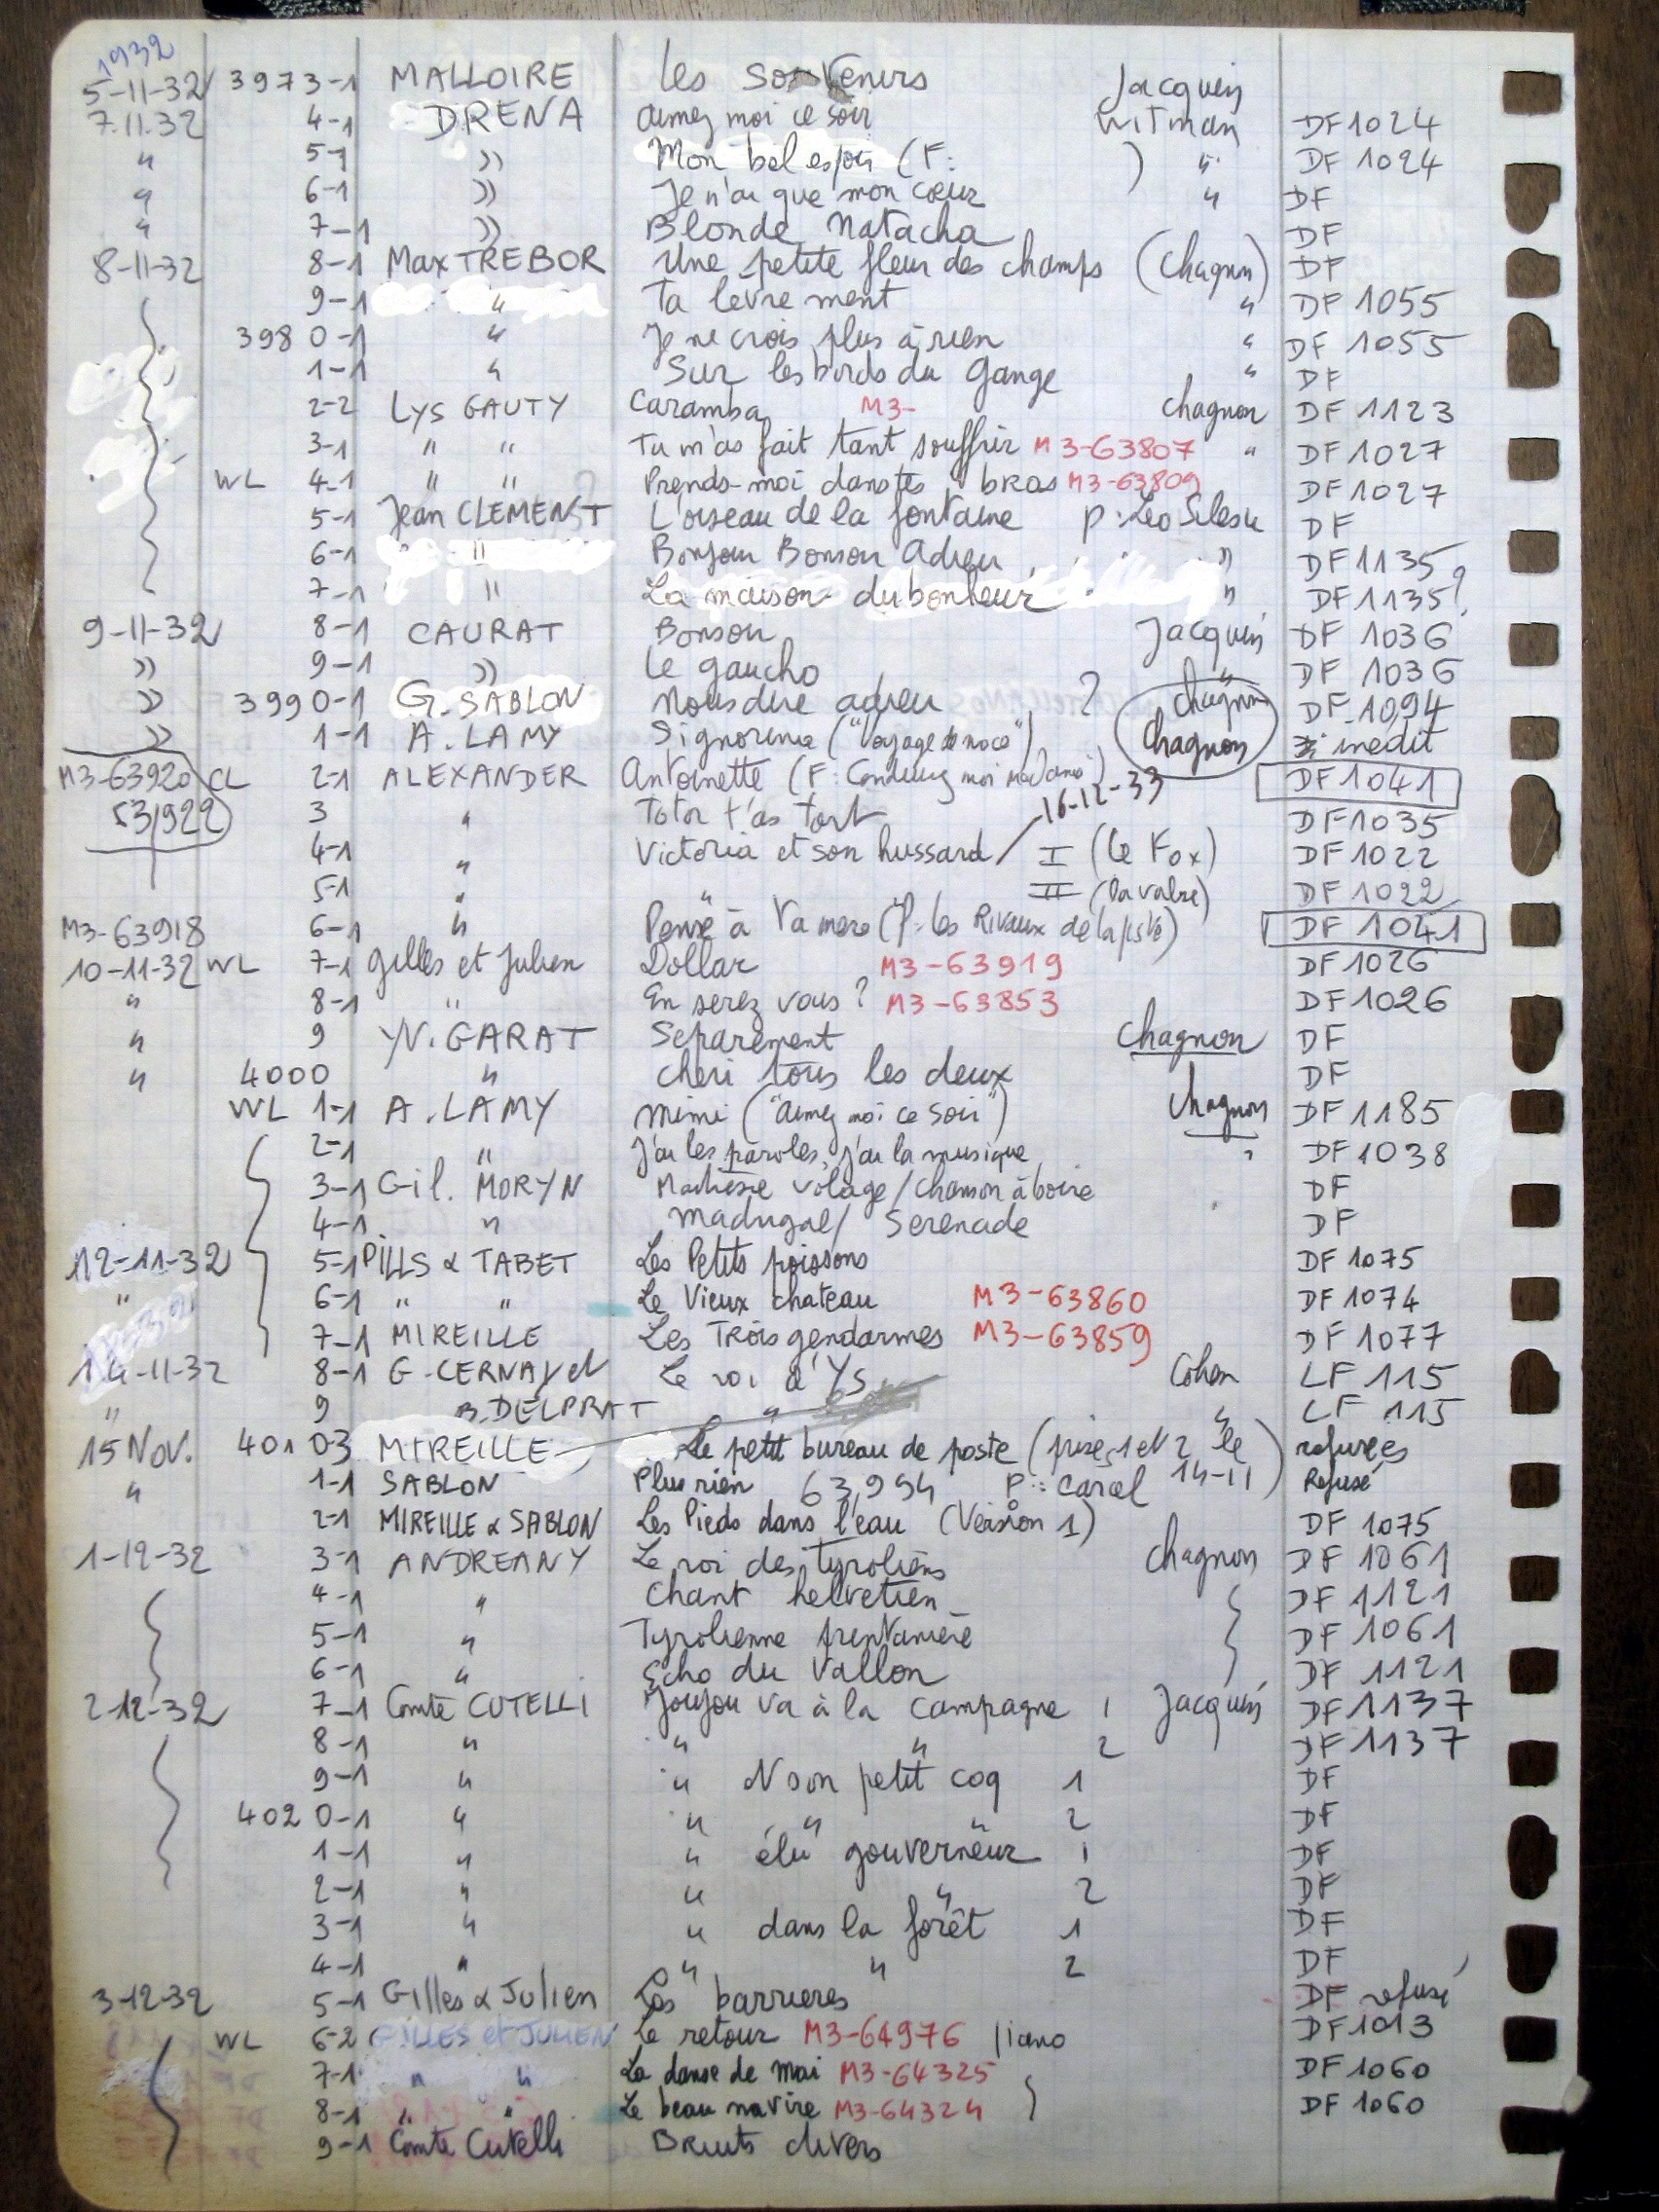 1932
5-11-32 3973-1 MALLOIRE Les Souvenirs Jacquin
7.11.32 4-1 DRENA aimez moi ce soir Witman DF 1024
" 5-1 » Mon bel espoir (F: ) " DF 1024
" 6-1 » Je n'ai que mon cœur " DF
" 7-1 » Blonde Natacha DF
8-11-32 8-1 Max TREBOR Une petite fleur des champs (Chagnon) DF
9-1 " Ta levre ment " DF 1055
398 0-1 " Je ne crois plus à rien " DF 1055
1-1 " Sur les bords du Gange " DF
2-2 LYS GAUTY Caramba M3- chagnon DF 1123
3-1 " " Tu m'as fait tant souffrir M3-63807 " DF 1027
WL 4-1 " " Prends-moi dans tes bras M3-63809 DF 1027
5-1 Jean CLEMENT L'oiseau de la fontaine p: Leo Silesu DF
6-1 " Bonjour Bonsoir Adieu » DF 1135
7-1 " La maison du bonheur " DF 1135?
9-11-32 8-1 CAURAT Bonsoir Jacquin DF 1036
» 9-1 » Le gaucho " DF 1036
» 3990-1 G. SABLON Nous dire adieu ? chagnon DF 1094
» 1-1 A. LAMY Signorina ("Voyage de noce") Chagnon inedit
M3-63920 CL 2-1 ALEXANDER Antoinette (F: Conduisez moi Madame) DF 1041
63922 3 " Totor t'as tort 16-12-33 DF 1035
4-1 " Victoria et son hussard / I (Le Fox) DF 1022
5-1 " " II (la valse) DF 1022
M3-63918 6-1 " Pense à Ta mere (P: les Rivaux de la piste) DF 1041
10-11-32 WL 7-1 Gilles et Julien Dollar M3-63919 DF 1026
" 8-1 " En serez vous? M3-63853 DF 1026
" 9 YV. GARAT Separement Chagnon DF
" 4000 " cheri tous les deux DF
WL 1-1 A. LAMY Mimi ("aimez moi ce soir") Chagnon DF 1185
2-1 " J'ai les paroles, j'ai la musique " DF 1038
3-1 Gil. MORYN Maitresse volage / chanson à boire DF
4-1 " Madrigal / Serenade DF
12-11-32 5-1 PILLS & TABET Les Petits poissons DF 1075
" 6-1 " " Le Vieux chateau M3-63860 DF 1074
7-1 MIREILLE Les Trois gendarmes M3-63859 DF 1077
14-11-32 8-1 G. CERNAY et Le roi d'Ys Cohen LF 115
" 9 B. DELPRAT " " LF 115
15 Nov. 401 0-3 MIREILLE Le petit bureau de poste (prises 1 et 2 le 14-11) refusées
" 1-1 SABLON Plus rien 63,994 P: carcel Refusé
2-1 MIREILLE & SABLON Les Pieds dans l'eau (Version 1) DF 1075
1-12-32 3-1 ANDREANY Le roi des tyroliens Chagnon DF 1061
4-1 " Chant helvetien DF 1121
5-1 " Tyrolienne printaniere DF 1061
6-1 " Echo du Vallon DF 1121
2-12-32 7-1 Comte CUTELLI Joujou va à la campagne 1 Jacquin DF 1137
8-1 " " " 2 DF 1137
9-1 " " et son petit coq 1 DF
402 0-1 " " " " 2 DF
1-1 " " élu gouverneur 1 DF
2-1 " " " 2 DF
3-1 " " dans la forêt 1 DF
4-1 " " " 2 DF
3-12-32 5-1 Gilles & Julien Les barrieres DF refusé
WL 6-2 GILLES et JULIEN Le retour M3-64976 piano DF 1013
7-1 " " La danse de mai M3-64325 DF 1060
8-1 " " Le beau navire M3-64324 DF 1060
9-1 Comte Cutelli Bruits divers